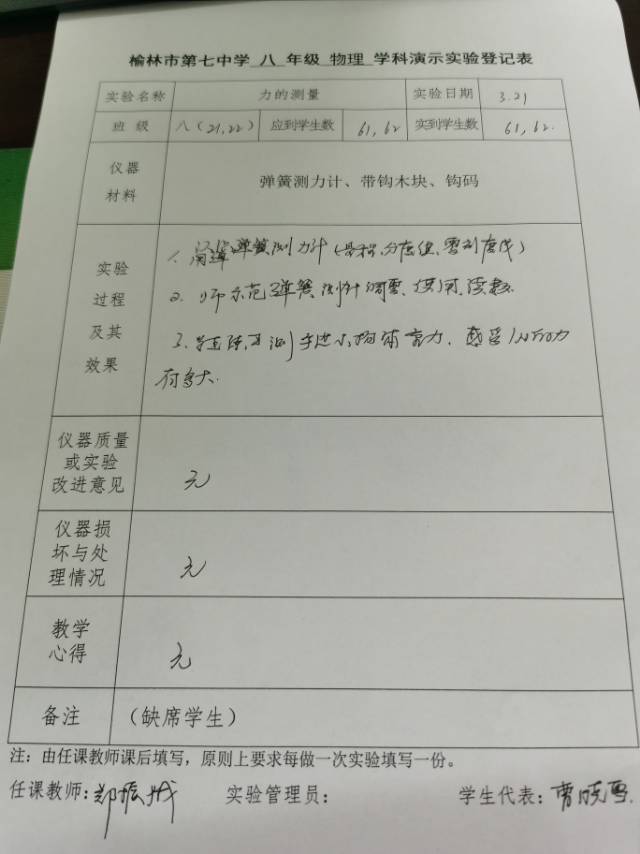 榆林市第七中学 八 年级 物理 学科演示实验登记表
实验名称 力的测量 实验日期 3.21
班 级 八（21,22） 应到学生数 61,62 实到学生数 61,62.
仪器
材料
弹簧测力计、带钩木块、钩码
实验
过程
及其
效果
1. 弹簧测力计（量程、分度值、零刻度线）
2. 师示范弹簧测力计调零、使用、读数.
3. 物体重力，感受1N的力
有多大.
仪器质量
或实验
改进意见
无
仪器损
坏与处
理情况
无
教学
心得
无
备注 （缺席学生）
注：由任课教师课后填写，原则上要求每做一次实验填写一份。
任课教师：郑振 实验管理员： 学生代表：曹晓雪.